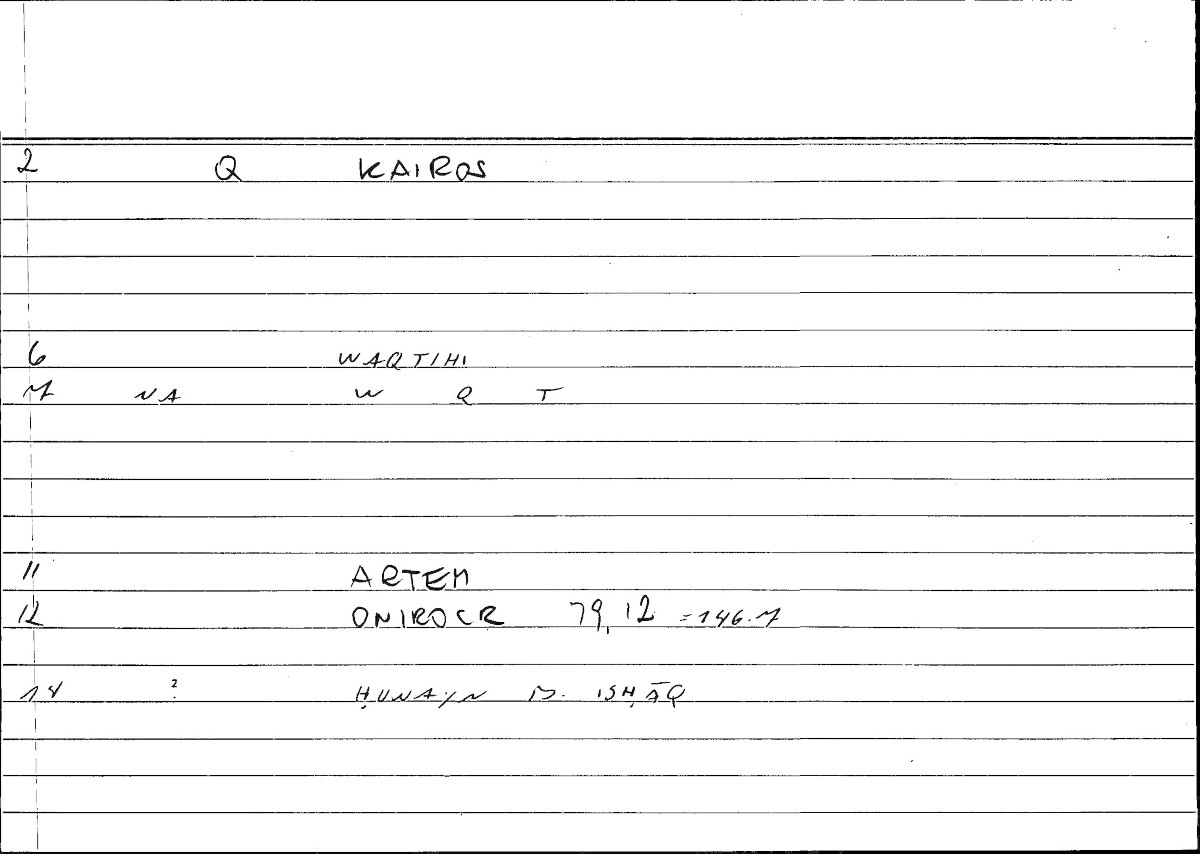 2 Q KAIROS
6 WAQTIHI
7 NA W Q T
11 ARTEM
12 ONIROCR 79,12 =146.7
14 ? ḤUNAYN B. ISḤĀQ